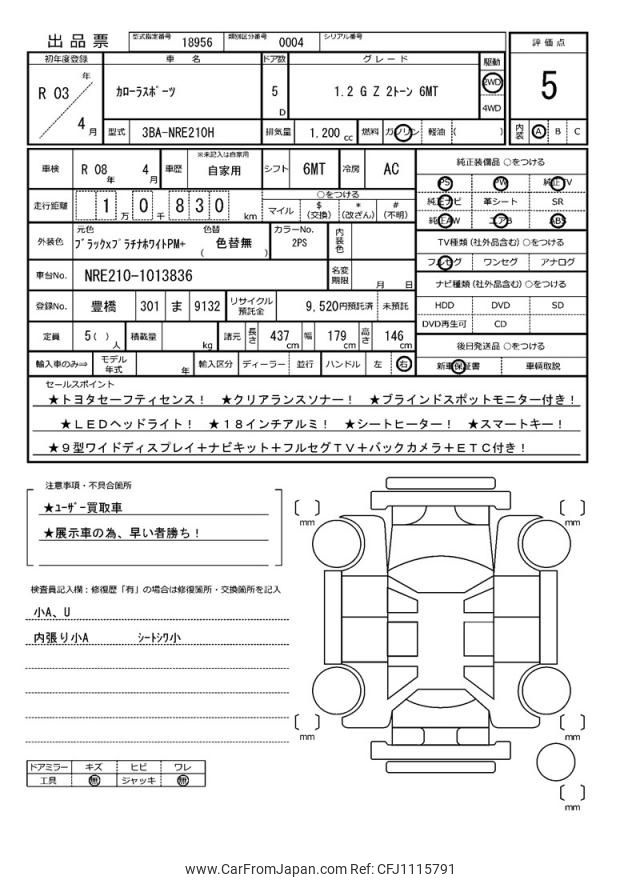 出品票 型式指定番号 18956 類別区分番号 0004 シリアル番号
評価点
5
内装 A B C
初年度登録 車名 ドア数 グレード 駆動
R 03 年 4 月
カローラスポーツ
5 D
1.2 G Z 2トーン 6MT
2WD
4WD
型式 3BA-NRE210H 排気量 1,200 cc 燃料 ガソリン 軽油 ( )
車検 R 08 年 4 月 車歴 ※未記入は自家用 自家用 シフト 6MT 冷房 AC
走行距離 1 万 0 千 8 3 0 km
○をつける
マイル $ (交換) * (改ざん) # (不明)
外装色 元色 ブラックxプラチナホワイトPM+ 色替 ( 色替無 ) カラーNo. 2PS 内装色
車台No. NRE210-1013836 名変期限 月 日
登録No. 豊橋 301 ま 9132 リサイクル預託金 9,520円預託済 未預託
定員 5( ) 人 積載量 kg 諸元 長さ 437 cm 幅 179 cm 高さ 146 cm
輸入車のみ⇒ モデル年式 年 輸入区分 ディーラー 並行 ハンドル 左 右
純正装備品 ○をつける
PS PW 純正TV
純正ナビ 革シート SR
純正AW エアB ABS
TV種類 (社外品含む) ○をつける
フルセグ ワンセグ アナログ
ナビ種類 (社外品含む) ○をつける
HDD DVD SD
DVD再生可 CD
後日発送品 ○をつける
新車保証書 車輌取説
セールスポイント
★トヨタセーフティセンス! ★クリアランスソナー! ★ブラインドスポットモニター付き!
★LEDヘッドライト! ★18インチアルミ! ★シートヒーター! ★スマートキー!
★9型ワイドディスプレイ+ナビキット+フルセグTV+バックカメラ+ETC付き!
注意事項・不具合箇所
★ユーザー買取車
★展示車の為、早い者勝ち!
検査員記入欄:修復歴「有」の場合は修復箇所・交換箇所を記入
小A、U
内張り小A シートシワ小
ドアミラー キズ ヒビ ワレ
工具 無 ジャッキ 無
mm
mm
mm
mm
mm
www.CarFromJapan.com Ref: CFJ1115791